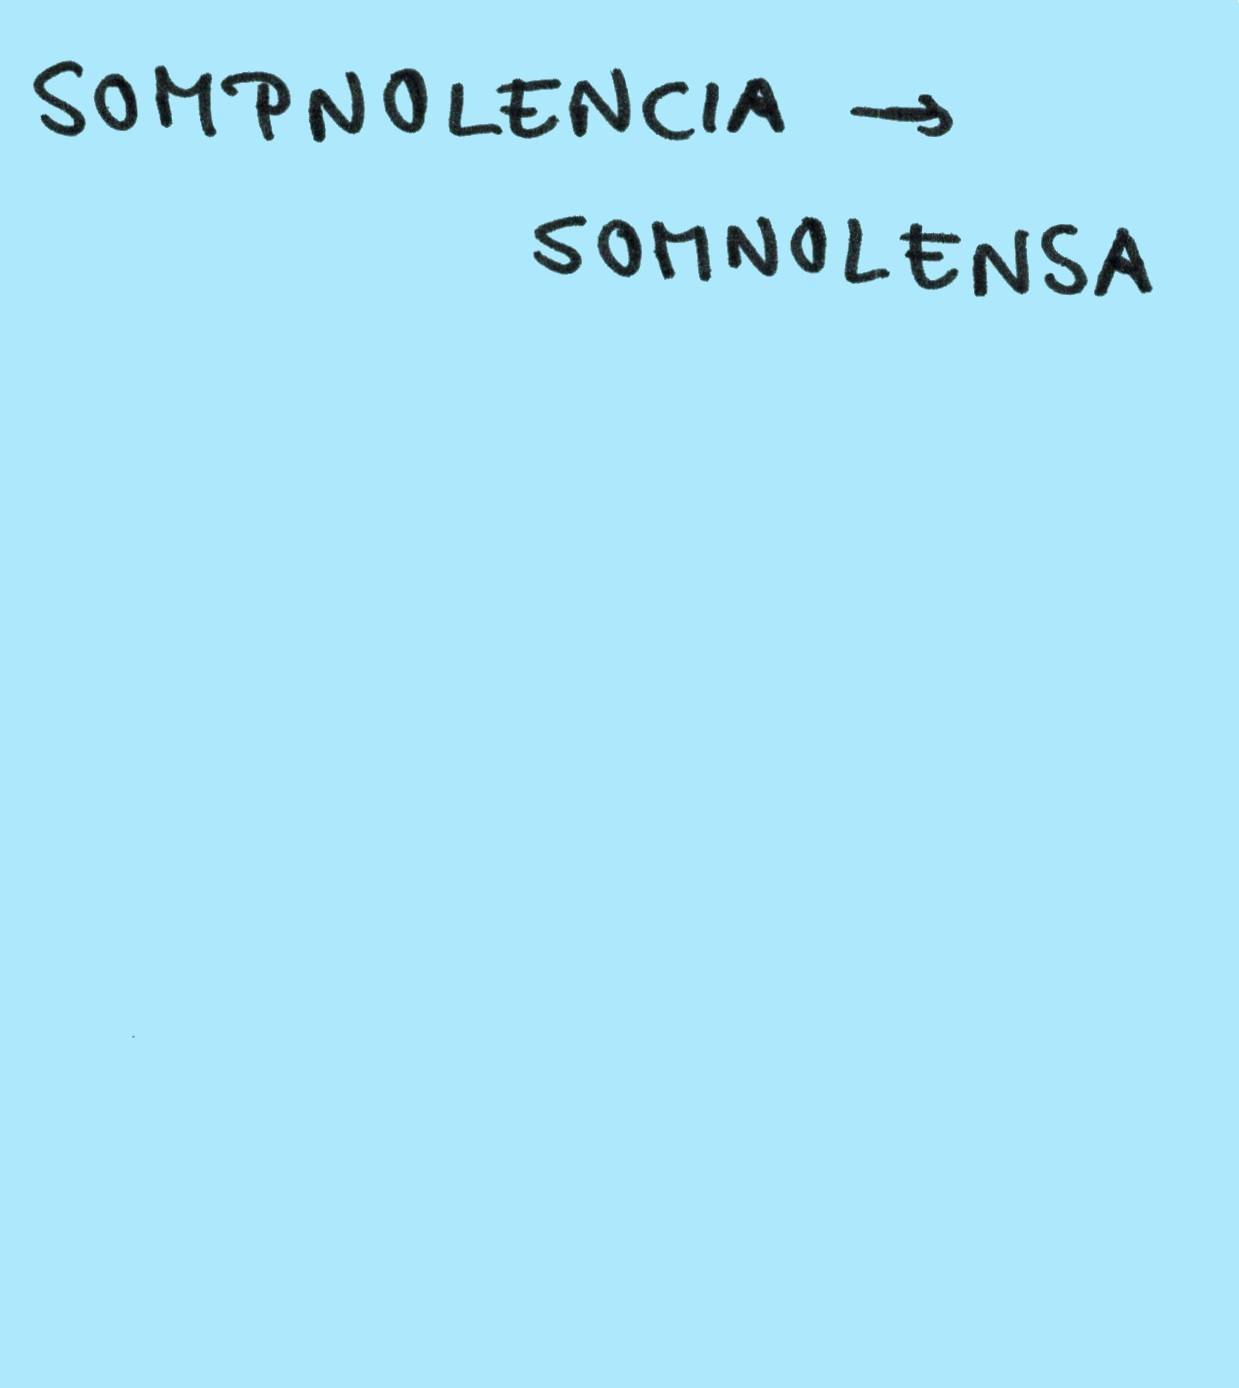 SOMPNOLENCIA →
SOMNOLENSA